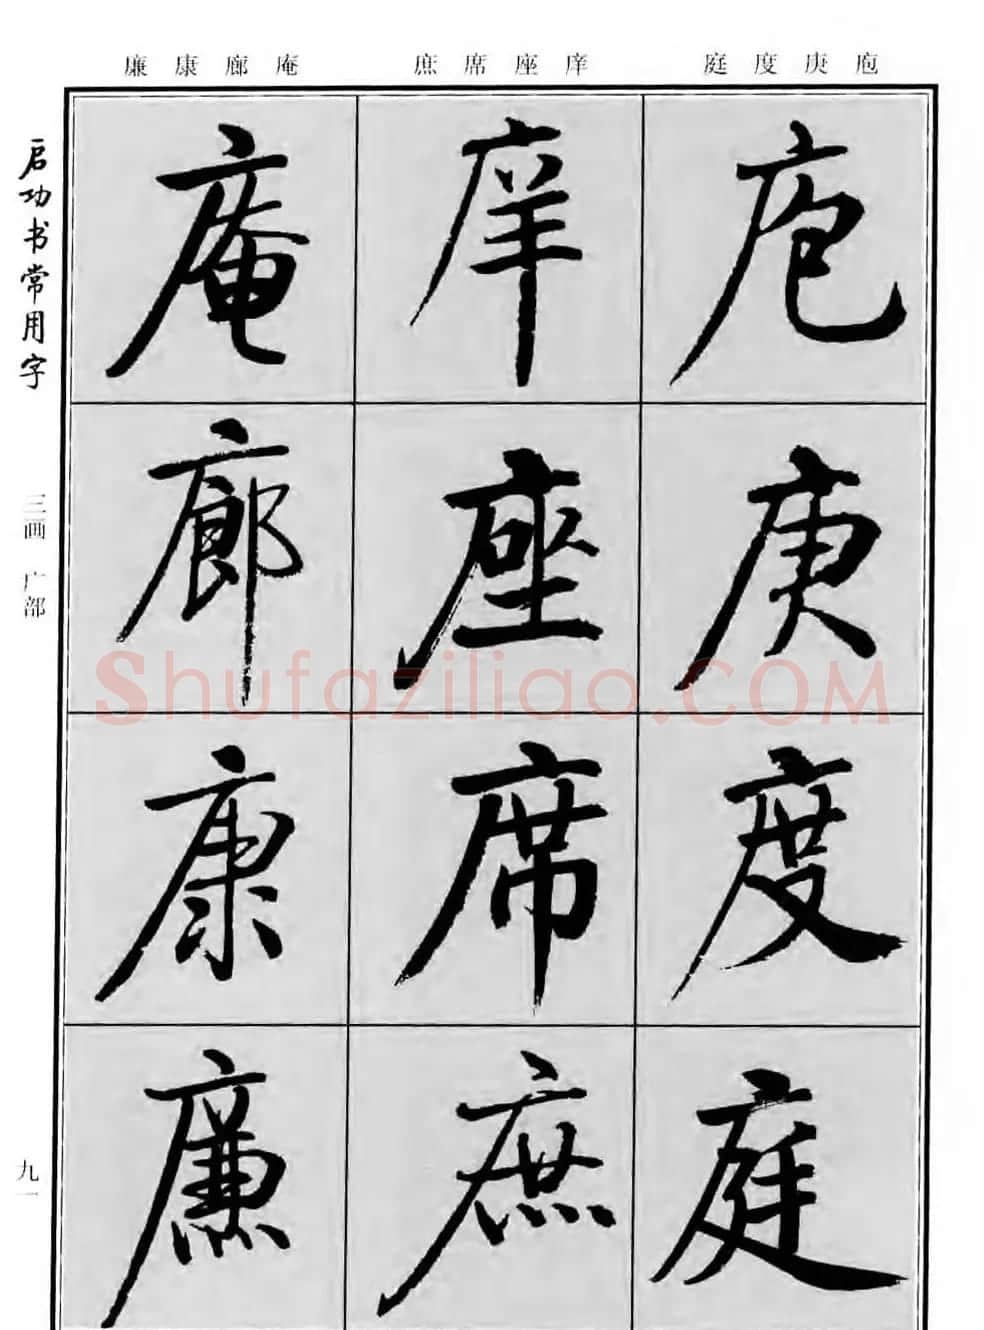 廉康廊庵 庶席座庠 庭度庚庖
启功书常用字
三画 广部
九一
庖
庚
度
庭
庠
座
席
庶
庵
廊
康
廉
Shufaziliao.COM